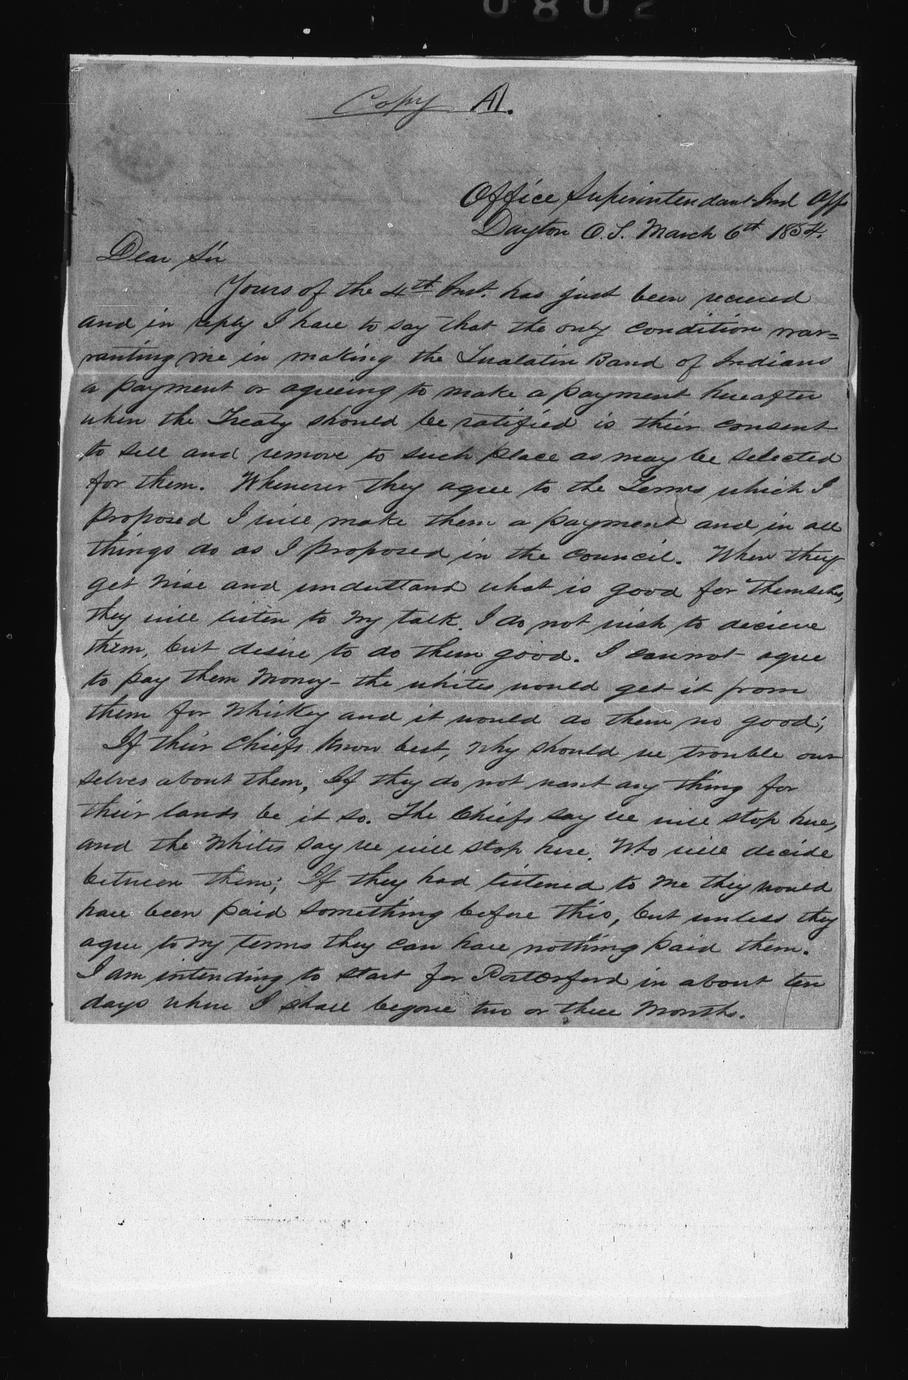 0802
Copy A.
Office Superintendant Ind Aff
Dayton O.T. March 6th 1854.
Dear Sir
Yours of the 4th Inst. has just been recieved
and in reply I have to say that the only condition war=
ranting me in making the Tualatin Band of Indians
a payment or agreeing to make a payment hereafter
when the Treaty should be ratified is their consent
to sell and remove to such place as may be selected
for them. Whenever they agree to the Terms which I
proposed I will make them a payment and in all
things do as I proposed in the council. When they
get wise and understand what is good for themselves,
they will listen to my talk. I do not wish to decieve
them, but desire to do them good. I cannot agree
to pay them Money - the whites would get it from
them for Whiskey and it would do them no good;
If their Chiefs know best, why should we trouble our
selves about them, If they do not want any thing for
their lands be it so. The Chiefs say we will stop here,
and the Whites say we will stop here. Who will decide
between them; If they had listened to me they would
have been paid something before this, but unless they
agree to my terms they can have nothing paid them.
I am intending to start for Port Orford in about ten
days when I shall be gone two or three Months.